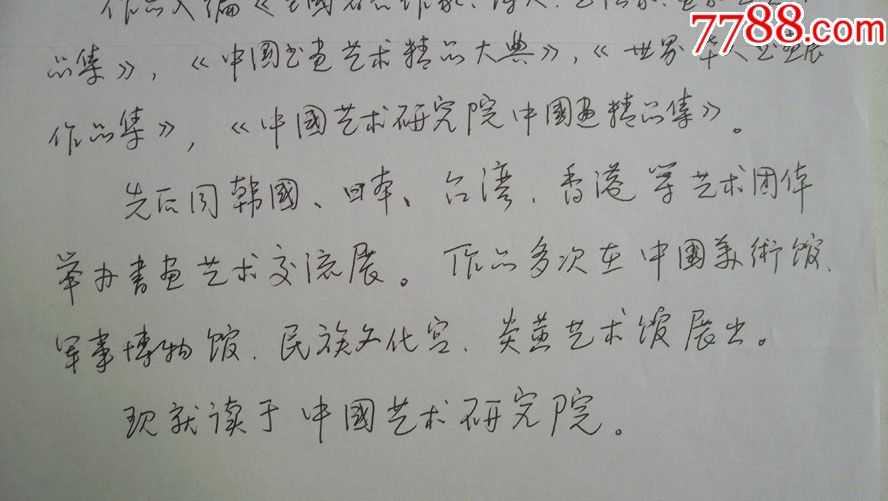 7788.com
作品入编《全国名品作家、诗人、书法家、
品集》,《中国书画艺术精品大典》,《世界华人书画展
作品集》,《中國艺术研究院中国画精品集》。
先后同韩國、日本、台湾、香港等艺术团体
举办書画艺术交流展。作品多次在中國美術馆、
军事博物馆、民族文化宫、炎黄艺术馆展出。
现就读于中國艺术研究院。